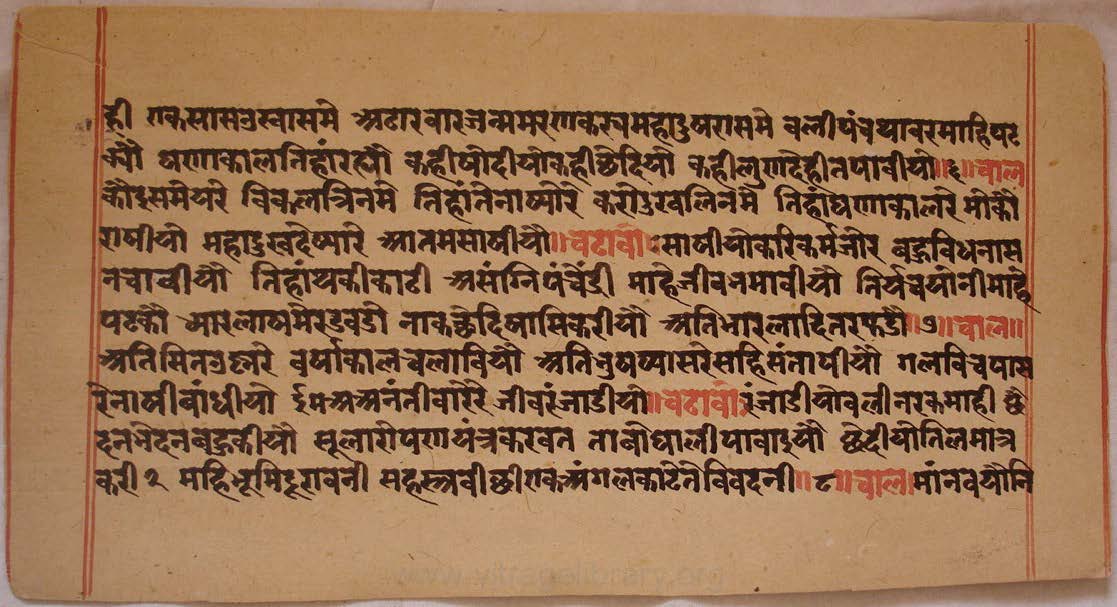 ही एकसासउस्वासमै अढारवारजन्ममरणकरचमहादुषरासमै वलीपंचथावरमाहिपट
क्यौ षणाकालतिहांरह्यौ कहीषोदीयौकहीछेदियौ कहीलुणदेहीतपावीयौ॥६॥चाल
कौइसमैयरै विकलात्रिनमै तिहांतैनाष्यौरै करीदुरवलितमै तिहांघणाकालरै मौकौ
राषीयौ महादुखदेष्यारै आतमसाषीयौ॥वढावौ॰साषीयौकरिकर्मजौर बहुविधनास
नचावीयौ तिहांथकीकाढी असंग्निपंचेंद्री माहैजीवभमावीयौ तिर्यचयौनीमाहै
पटकौ भारलाषमेरडवडौ नाकछेदिषासिकरीयौ अतिभारलादितरफडौ७॥चाल॥
अतिसितउष्नरै वर्षाकालचलावियौ अतिभुषप्यासरैसहिसंतापीयौ गलैविचपास
रैनाषीबांधीयौ ईमअअनंतीवाररै जीवरंजाडीयौ॥वढावौ॰रंजाडीयौवलीनरकमाही छै
दनभेदनबहुकीयौ सूलारोपणयंत्रकरवत तावौघालीपावादयौ छेदीयौतिलमात्र
करी२ माहिभूमिदूरावनी सहस्त्रवीछीएकअंगलकाटैतैविवदनी॥८॥चाल।मांनवयौनि